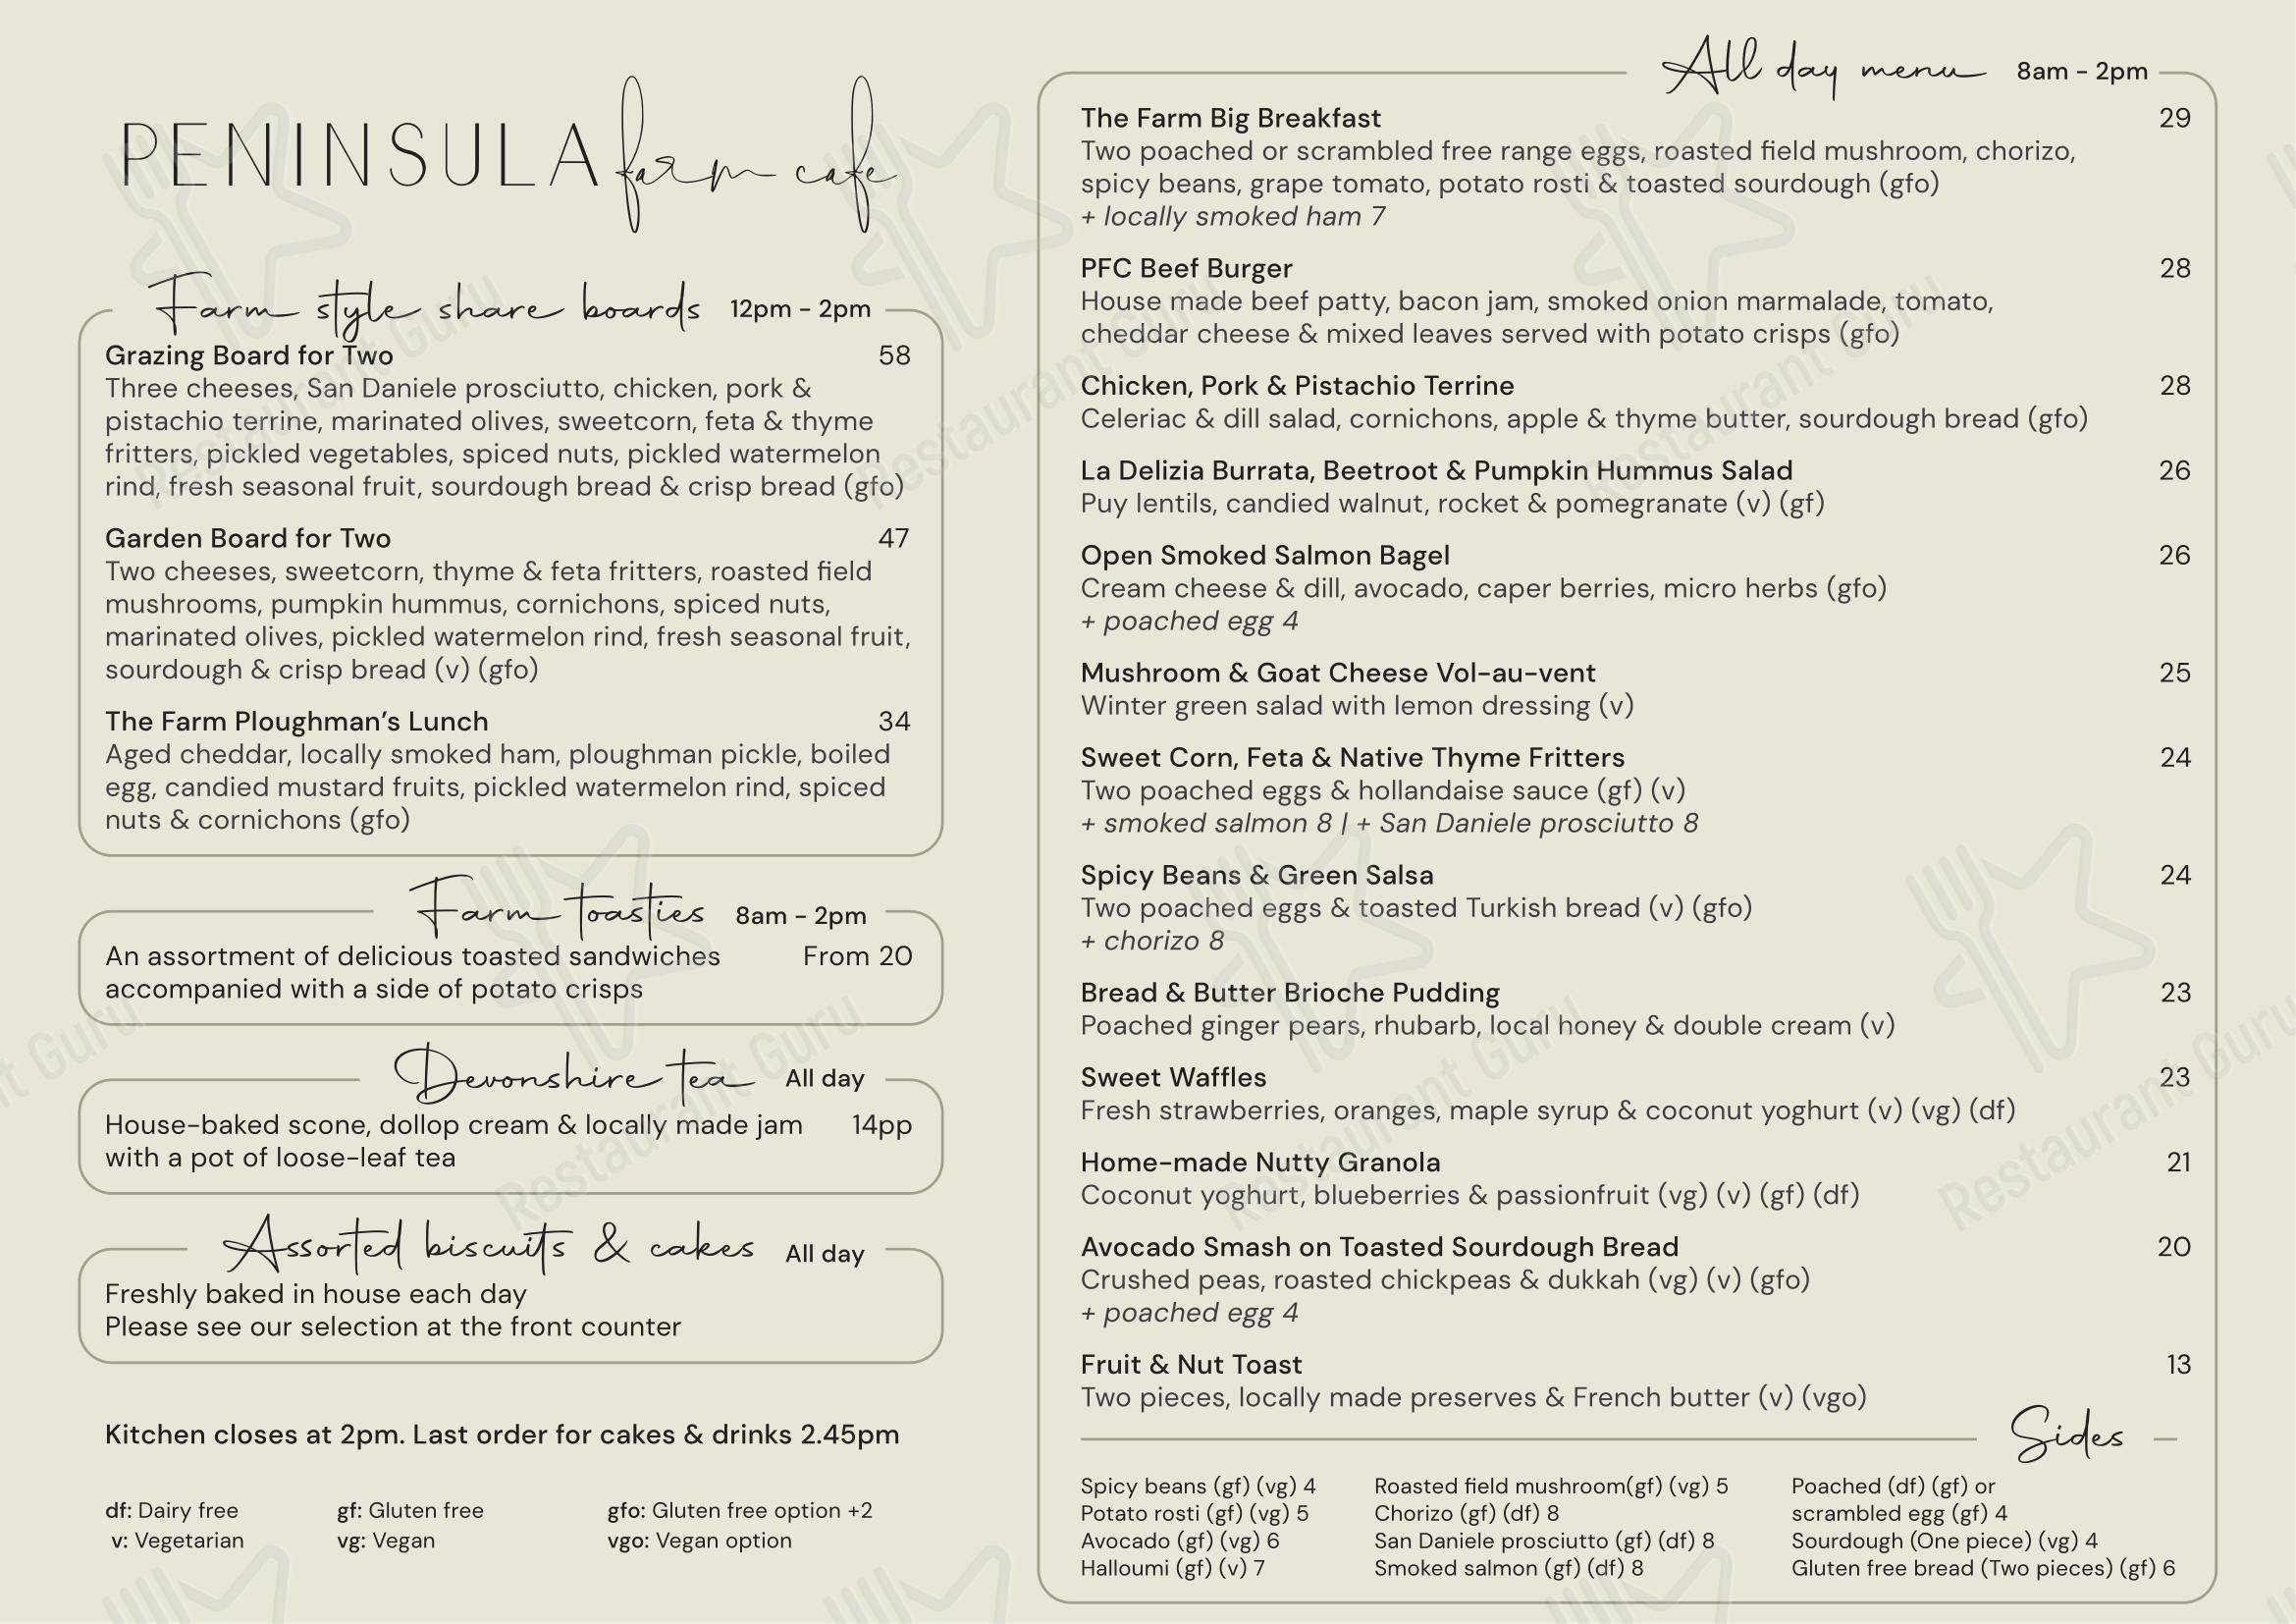 PENINSULA farm cafe
Farm style share boards 12pm - 2pm
Grazing Board for Two 58
Three cheeses, San Daniele prosciutto, chicken, pork &
pistachio terrine, marinated olives, sweetcorn, feta & thyme
fritters, pickled vegetables, spiced nuts, pickled watermelon
rind, fresh seasonal fruit, sourdough bread & crisp bread (gfo)
Garden Board for Two 47
Two cheeses, sweetcorn, thyme & feta fritters, roasted field
mushrooms, pumpkin hummus, cornichons, spiced nuts,
marinated olives, pickled watermelon rind, fresh seasonal fruit,
sourdough & crisp bread (v) (gfo)
The Farm Ploughman’s Lunch 34
Aged cheddar, locally smoked ham, ploughman pickle, boiled
egg, candied mustard fruits, pickled watermelon rind, spiced
nuts & cornichons (gfo)
Farm toasties 8am - 2pm
An assortment of delicious toasted sandwiches From 20
accompanied with a side of potato crisps
Devonshire tea All day
House-baked scone, dollop cream & locally made jam 14pp
with a pot of loose-leaf tea
Assorted biscuits & cakes All day
Freshly baked in house each day
Please see our selection at the front counter
Kitchen closes at 2pm. Last order for cakes & drinks 2.45pm
df: Dairy free gf: Gluten free gfo: Gluten free option +2
v: Vegetarian vg: Vegan vgo: Vegan option
All day menu 8am - 2pm
The Farm Big Breakfast 29
Two poached or scrambled free range eggs, roasted field mushroom, chorizo,
spicy beans, grape tomato, potato rosti & toasted sourdough (gfo)
+ locally smoked ham 7
PFC Beef Burger 28
House made beef patty, bacon jam, smoked onion marmalade, tomato,
cheddar cheese & mixed leaves served with potato crisps (gfo)
Chicken, Pork & Pistachio Terrine 28
Celeriac & dill salad, cornichons, apple & thyme butter, sourdough bread (gfo)
La Delizia Burrata, Beetroot & Pumpkin Hummus Salad 26
Puy lentils, candied walnut, rocket & pomegranate (v) (gf)
Open Smoked Salmon Bagel 26
Cream cheese & dill, avocado, caper berries, micro herbs (gfo)
+ poached egg 4
Mushroom & Goat Cheese Vol-au-vent 25
Winter green salad with lemon dressing (v)
Sweet Corn, Feta & Native Thyme Fritters 24
Two poached eggs & hollandaise sauce (gf) (v)
+ smoked salmon 8 | + San Daniele prosciutto 8
Spicy Beans & Green Salsa 24
Two poached eggs & toasted Turkish bread (v) (gfo)
+ chorizo 8
Bread & Butter Brioche Pudding 23
Poached ginger pears, rhubarb, local honey & double cream (v)
Sweet Waffles 23
Fresh strawberries, oranges, maple syrup & coconut yoghurt (v) (vg) (df)
Home-made Nutty Granola 21
Coconut yoghurt, blueberries & passionfruit (vg) (v) (gf) (df)
Avocado Smash on Toasted Sourdough Bread 20
Crushed peas, roasted chickpeas & dukkah (vg) (v) (gfo)
+ poached egg 4
Fruit & Nut Toast 13
Two pieces, locally made preserves & French butter (v) (vgo)
Sides
Spicy beans (gf) (vg) 4
Potato rosti (gf) (vg) 5
Avocado (gf) (vg) 6
Halloumi (gf) (v) 7
Roasted field mushroom(gf) (vg) 5
Chorizo (gf) (df) 8
San Daniele prosciutto (gf) (df) 8
Smoked salmon (gf) (df) 8
Poached (df) (gf) or
scrambled egg (gf) 4
Sourdough (One piece) (vg) 4
Gluten free bread (Two pieces) (gf) 6
Restaurant Guru
Restaurant Guru
Restaurant Guru
t Guru
Restaurant Guru
Restaurant Guru
Restaurant Guru